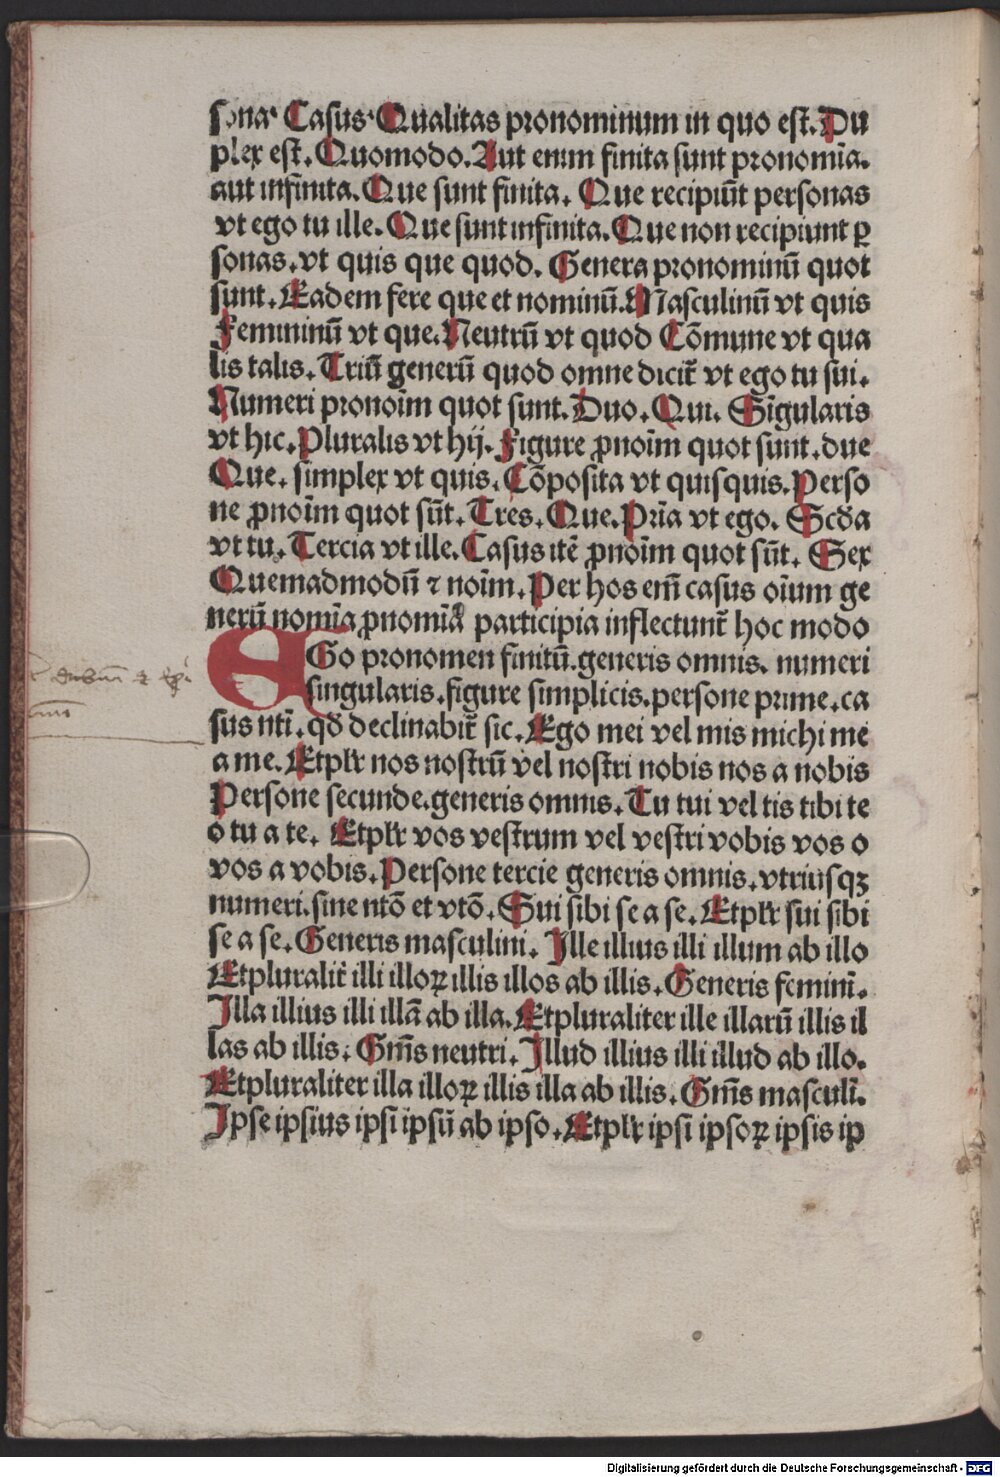 sona. Casus. Qualitas pronominum in quo est. Du
plex est. Quomodo. Aut enim finita sunt pronomīa.
aut infinita. Que sunt finita. Que recipiūt personas
vt ego tu ille. Que sunt infinita. Que non recipiunt ꝑ
sonas. vt quis que quod. Genera pronominū quot
sunt. Eadem fere que et nominū. Masculinū vt quis
Femininū vt que. Neutrū vt quod Cōmune vt qua
lis talis. Triū generū quod omne dicit̄ vt ego tu sui.
Numeri pronoīm quot sunt. Duo. Qui. Sīgularis
vt hic. Pluralis vt hij. Figure ꝓnoīm quot sunt. due
Que. simplex vt quis. Cōposita vt quisquis. Perso
ne ꝓnoīm quot sūt. Tres. Que. Prīa vt ego. Scd̄a
vt tu. Tercia vt ille. Casus itē ꝓnoīm quot sūt. Sex
Quemadmodū ⁊ noīm. Per hos em̄ casus oīum ge
nerū nomīa ꝓnomīa participia inflectunt̄ hoc modo
EGo pronomen finitū. generis omnis. numeri
singularis. figure simplicis. persone prime. ca
sus ntī. qd̄ declinabit̄ sic. Ego mei vel mis michi me
a me. Et plr̄ nos nostrū vel nostri nobis nos a nobis
Persone secunde. generis omnis. Tu tui vel tis tibi te
o tu a te. Et plr̄ vos vestrum vel vestri vobis vos o
vos a vobis. Persone tercie generis omnis. vtriusqꝫ
numeri. sine ntō et vtō. Sui sibi se a se. Et plr̄ sui sibi
se a se. Generis masculini. Ille illius illi illum ab illo
Et pluralit̄ illi illoꝝ illis illos ab illis. Generis feminī.
Illa illius illi illā ab illa. Et pluraliter ille illarū illis il
las ab illis. Gn̄is neutri. Illud illius illi illud ab illo.
Et pluraliter illa illoꝝ illis illa ab illis. Gn̄is masculī.
Ipse ipsius ipsi ipsū ab ipso. Et plr̄ ipsi ipsoꝝ ipsis ip
Digitalisierung gefördert durch die Deutsche Forschungsgemeinschaft - DFG